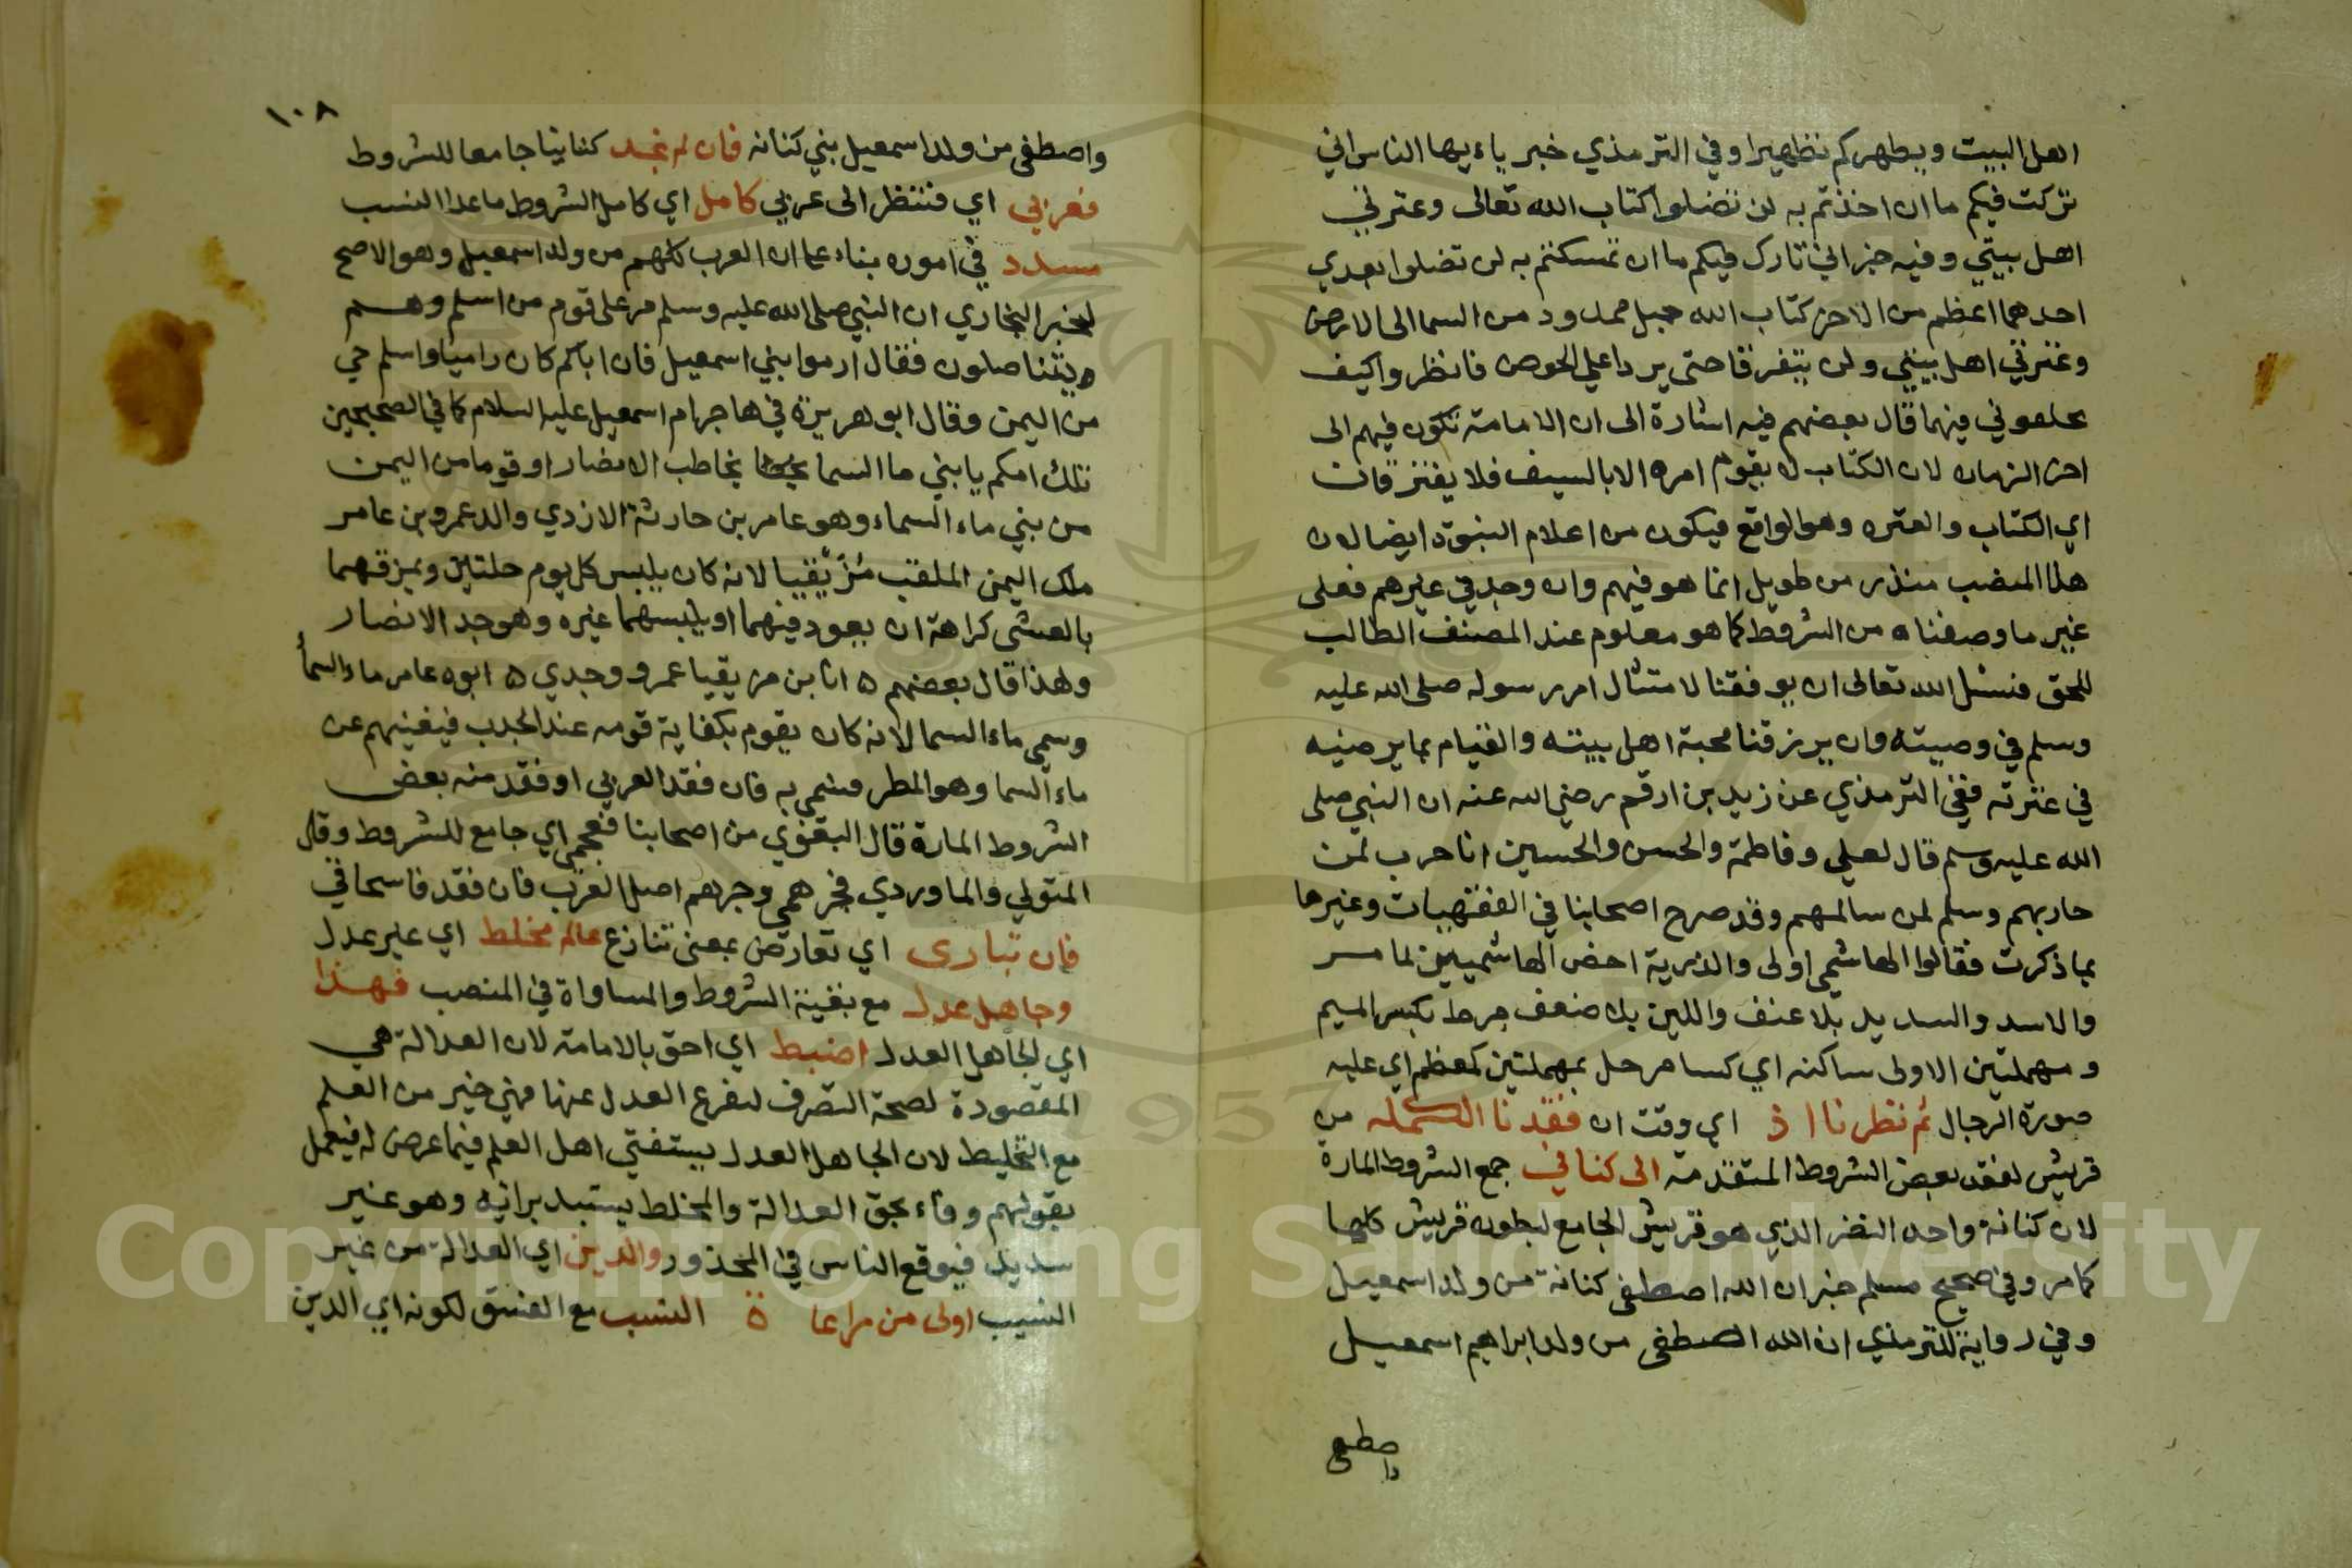 اهل البيت ويطهركم تطهيرا وفي الترمذي خبر ياءيها الناس اني
تركت فيكم ما ان اخذتم به لن تضلوا كتاب الله تعالى وعترتي
اهل بيتي وفيه خبر اني تارك فيكم ما ان تمسكتم به لن تضلوا بعدي
احدهما اعظم من الاخر كتاب الله حبل ممدود من السما الى الارض
وعترتي اهل بيتي ولن يتفرقا حتى يردا علي الحوض فانظروا كيف
تخلفوني فيهما قال بعضهم فيه اشارة الى ان الامامة تكون فيهم الى
اخر الزمان لان الكتاب لا يقوم امره الا بالسيف فلا يفترقان
اي الكتاب والعتره وهو الواقع فيكون من اعلام النبوة ايضا لان
هذا المنصب منذ زمن طويل انما هو فيهم وان وجد في غيرهم فعلى
غير ما وصفناه من الشروط كما هو معلوم عند المصنف الطالب
للحق فنسئل الله تعالى ان يوفقنا لامتثال امر رسوله صلى الله عليه
وسلم في وصيته وان يرزقنا محبة اهل بيته والقيام بما يرضيه
في عترته ففي الترمذي عن زيد بن ارقم رضي الله عنه ان النبي صلى
الله عليه وسلم قال لعلي وفاطمة والحسن والحسين انا حرب لمن
حاربهم وسلم لمن سالمهم وقد صرح اصحابنا في الفقهيات وغيرها
بما ذكرت فقالوا الهاشمي اولى والذرية اخص الهاشميين لما مر
والاسد والسديد بلا عنف واللين بلا ضعف مرط بكسر الميم
ومهملتين الاولى ساكنه اي كسا مرحل بمهملتين كمعظم اي عليه
صورة الرحال ثم نظرنا اذ اي وقت ان فقدنا الكمله من
قريش لفقد بعض الشروط المتقدمة الى كناني جمع الشروط المارة
لان كنانة واحد النضر الذي هو قريش الجامع لبطون قريش كلها
كما مر وفي صحيح مسلم خبر ان الله اصطفى كنانة من ولد اسمعيل
وفي رواية للترمذي ان الله اصطفى من ولد ابراهيم اسمعيل
واصطفى
١٠٨
واصطفى من ولد اسمعيل بني كنانه فان لم نجد كنانيا جامعا للشروط
فعربي اي فننظر الى عربي كامل اي كامل الشروط ما عدا النسب
مسدد في اموره بناء على ان العرب كلهم من ولد اسمعيل وهو الاصح
لخبر البخاري ان النبي صلى الله عليه وسلم مر على قوم من اسلم وهم
يتناضلون فقال ارموا بني اسمعيل فان اباكم كان راميا واسلم حي
من اليمن وقال ابو هريرة في هاجر ام اسمعيل عليه السلام كما في الصحيحين
تلك امكم يا بني ما السما يخاطب الانصار او قوما من اليمن
من بني ماء السماء وهو عامر بن حارثة الازدي والد عمرو بن عامر
ملك اليمن الملقب مُزَيْقيا لانه كان يلبس كل يوم حلتين ويمزقهما
بالعشى كراهة ان يعود فيهما او يلبسهما غيره وهو جد الانصار
ولهذا قال بعضهم ه انا بن مزيقيا عمرو وجدي ه ابوه عامر ماء السما
وسمي ماء السما لانه كان يقوم بكفاية قومه عند الجدب فيغنيهم عن
ماء السما وهو المطر فسمي به فان فقد العربي او فقد منه بعض
الشروط المارة قال البغوي من اصحابنا فعجمي اي جامع للشروط وقال
المتولي والماوردي فجرهمي وجرهم اصل العرب فان فقد فاسحاقي
فان تبارى اي تعارض بمعنى تنازع عالم مخلط اي غير عدل
وجاهل عدل مع بقية الشروط والمساواة في المنصب فهذا
اي الجاهل العدل اضبط اي احق بالامامة لان العدالة هي
المقصودة لصحة التصرف لتفرع العدل عنها فهي خير من العلم
مع التخليط لان الجاهل العدل يستفتي اهل العلم فيما عرض له فيعمل
بقولهم وفاء بحق العدالة والمخلط يستبد برائه وهو غير
سديد فيوقع الناس في المحذور والدين اي العدالة من غير
النسيب اولى من مراعاة النسب مع الفسق لكونه اي الدين
Copyright © King Saud University
1957